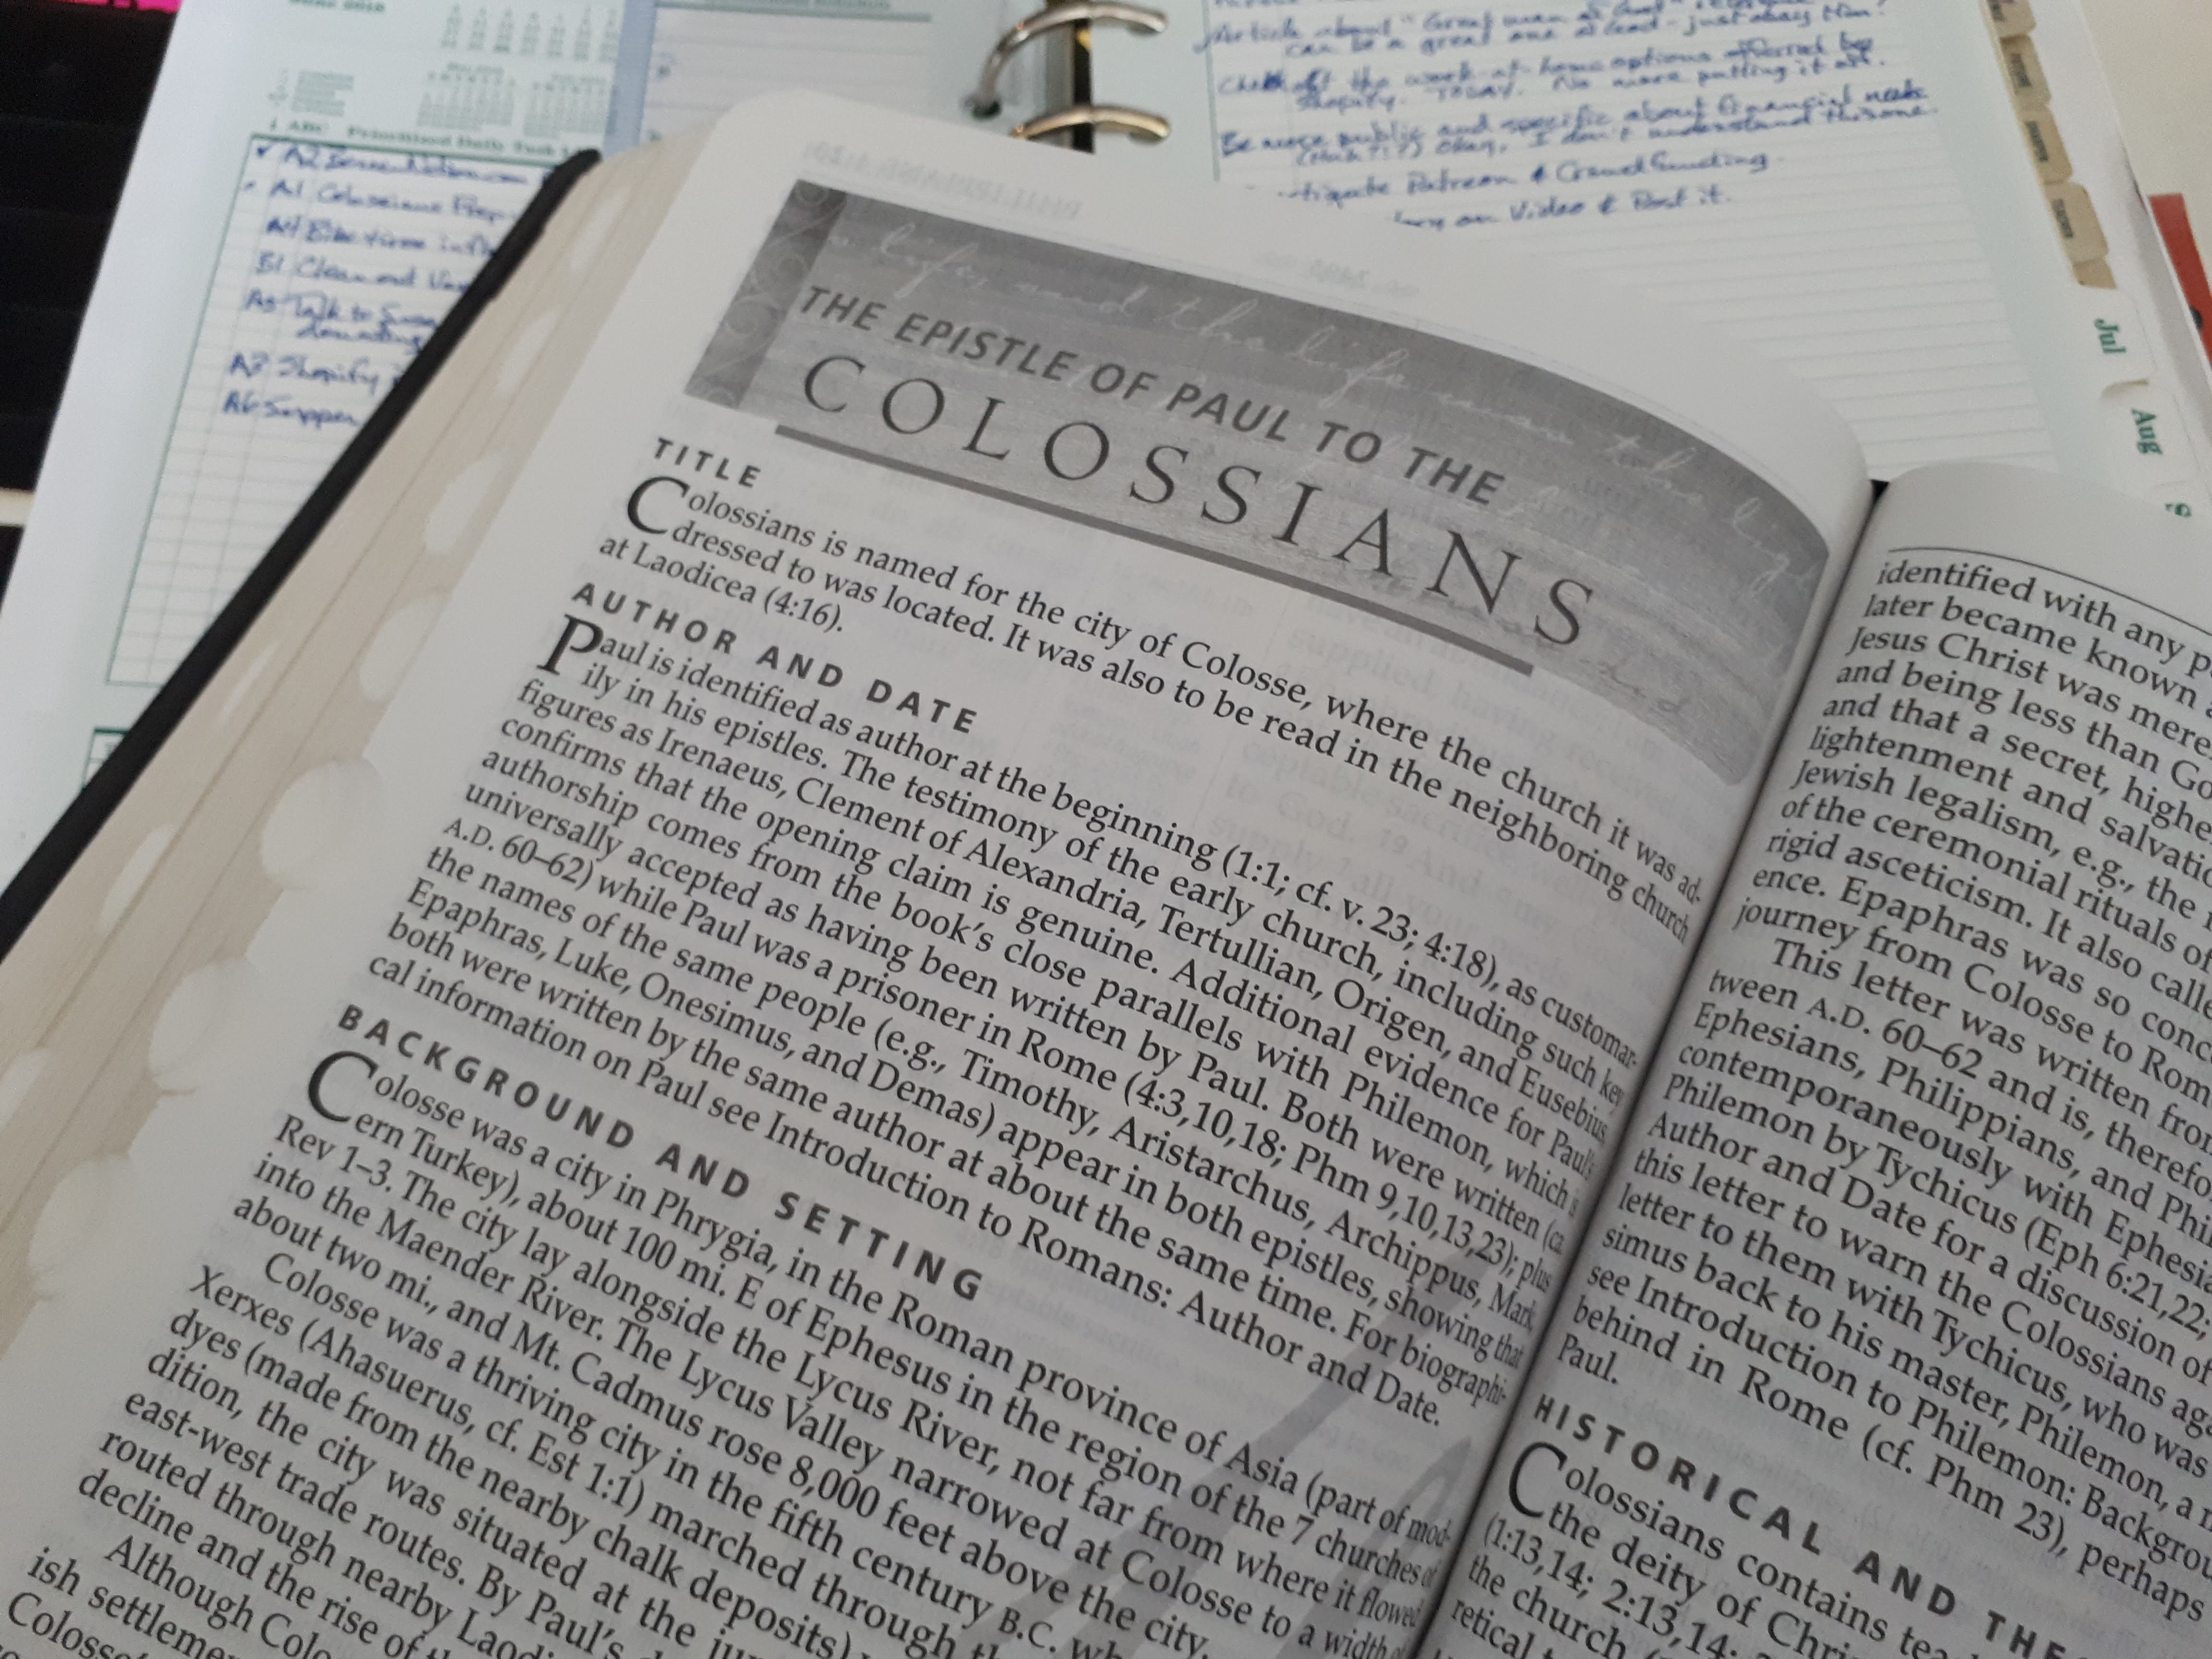 June 2018
ABC Prioritized Daily Task
A1 Colossians Prep
A4 Bike time
B1 Clean out
A5 Talk to
A3 Shopify
A6 Supper
Article about "Great man of God"
can be a great one of God - just obey Him!
Check out the work-at-home options offered by
Shopify. TODAY. No more putting it off.
Be more public and specific about financial needs
(Huh???) Okay, I don't understand this one.
Patreon & Crowdfunding
on Video & Post it.
Jul
Aug
THE EPISTLE OF PAUL TO THE
COLOSSIANS
TITLE
Colossians is named for the city of Colosse, where the church it was ad-
dressed to was located. It was also to be read in the neighboring church
at Laodicea (4:16).
AUTHOR AND DATE
Paul is identified as author at the beginning (1:1; cf. v. 23; 4:18), as customar-
ily in his epistles. The testimony of the early church, including such key
figures as Irenaeus, Clement of Alexandria, Tertullian, Origen, and Eusebius,
confirms that the opening claim is genuine. Additional evidence for Paul's
authorship comes from the book's close parallels with Philemon, which is
universally accepted as having been written by Paul. Both were written (ca.
A.D. 60–62) while Paul was a prisoner in Rome (4:3,10,18; Phm 9,10,13,23); plus
the names of the same people (e.g., Timothy, Aristarchus, Archippus, Mark,
Epaphras, Luke, Onesimus, and Demas) appear in both epistles, showing that
both were written by the same author at about the same time. For biographi-
cal information on Paul see Introduction to Romans: Author and Date.
BACKGROUND AND SETTING
Colosse was a city in Phrygia, in the Roman province of Asia (part of mod-
ern Turkey), about 100 mi. E of Ephesus in the region of the 7 churches of
Rev 1–3. The city lay alongside the Lycus River, not far from where it flowed
into the Maender River. The Lycus Valley narrowed at Colosse to a width of
about two mi., and Mt. Cadmus rose 8,000 feet above the city.
Colosse was a thriving city in the fifth century B.C. wh
Xerxes (Ahasuerus, cf. Est 1:1) marched through th
dyes (made from the nearby chalk deposits)
dition, the city was situated at the jun
east-west trade routes. By Paul's d
routed through nearby Laodi
decline and the rise of th
Although Colo
ish settlemen
Colosse'
identified with any p
later became known a
Jesus Christ was mere
and being less than Go
and that a secret, highe
lightenment and salvatio
Jewish legalism, e.g., the
of the ceremonial rituals of
rigid asceticism. It also calle
ence. Epaphras was so conc
journey from Colosse to Rom
This letter was written from
tween A.D. 60–62 and is, therefo
Ephesians, Philippians, and Phi
contemporaneously with Ephesia
Philemon by Tychicus (Eph 6:21,22;
Author and Date for a discussion of
this letter to warn the Colossians ag
letter to them with Tychicus, who was
simus back to his master, Philemon, a
see Introduction to Philemon: Backgrou
behind in Rome (cf. Phm 23), perhaps
Paul.
HISTORICAL AND THE
Colossians contains tea
the deity of Chri
(1:13,14; 2:13,14;
the church (
retical